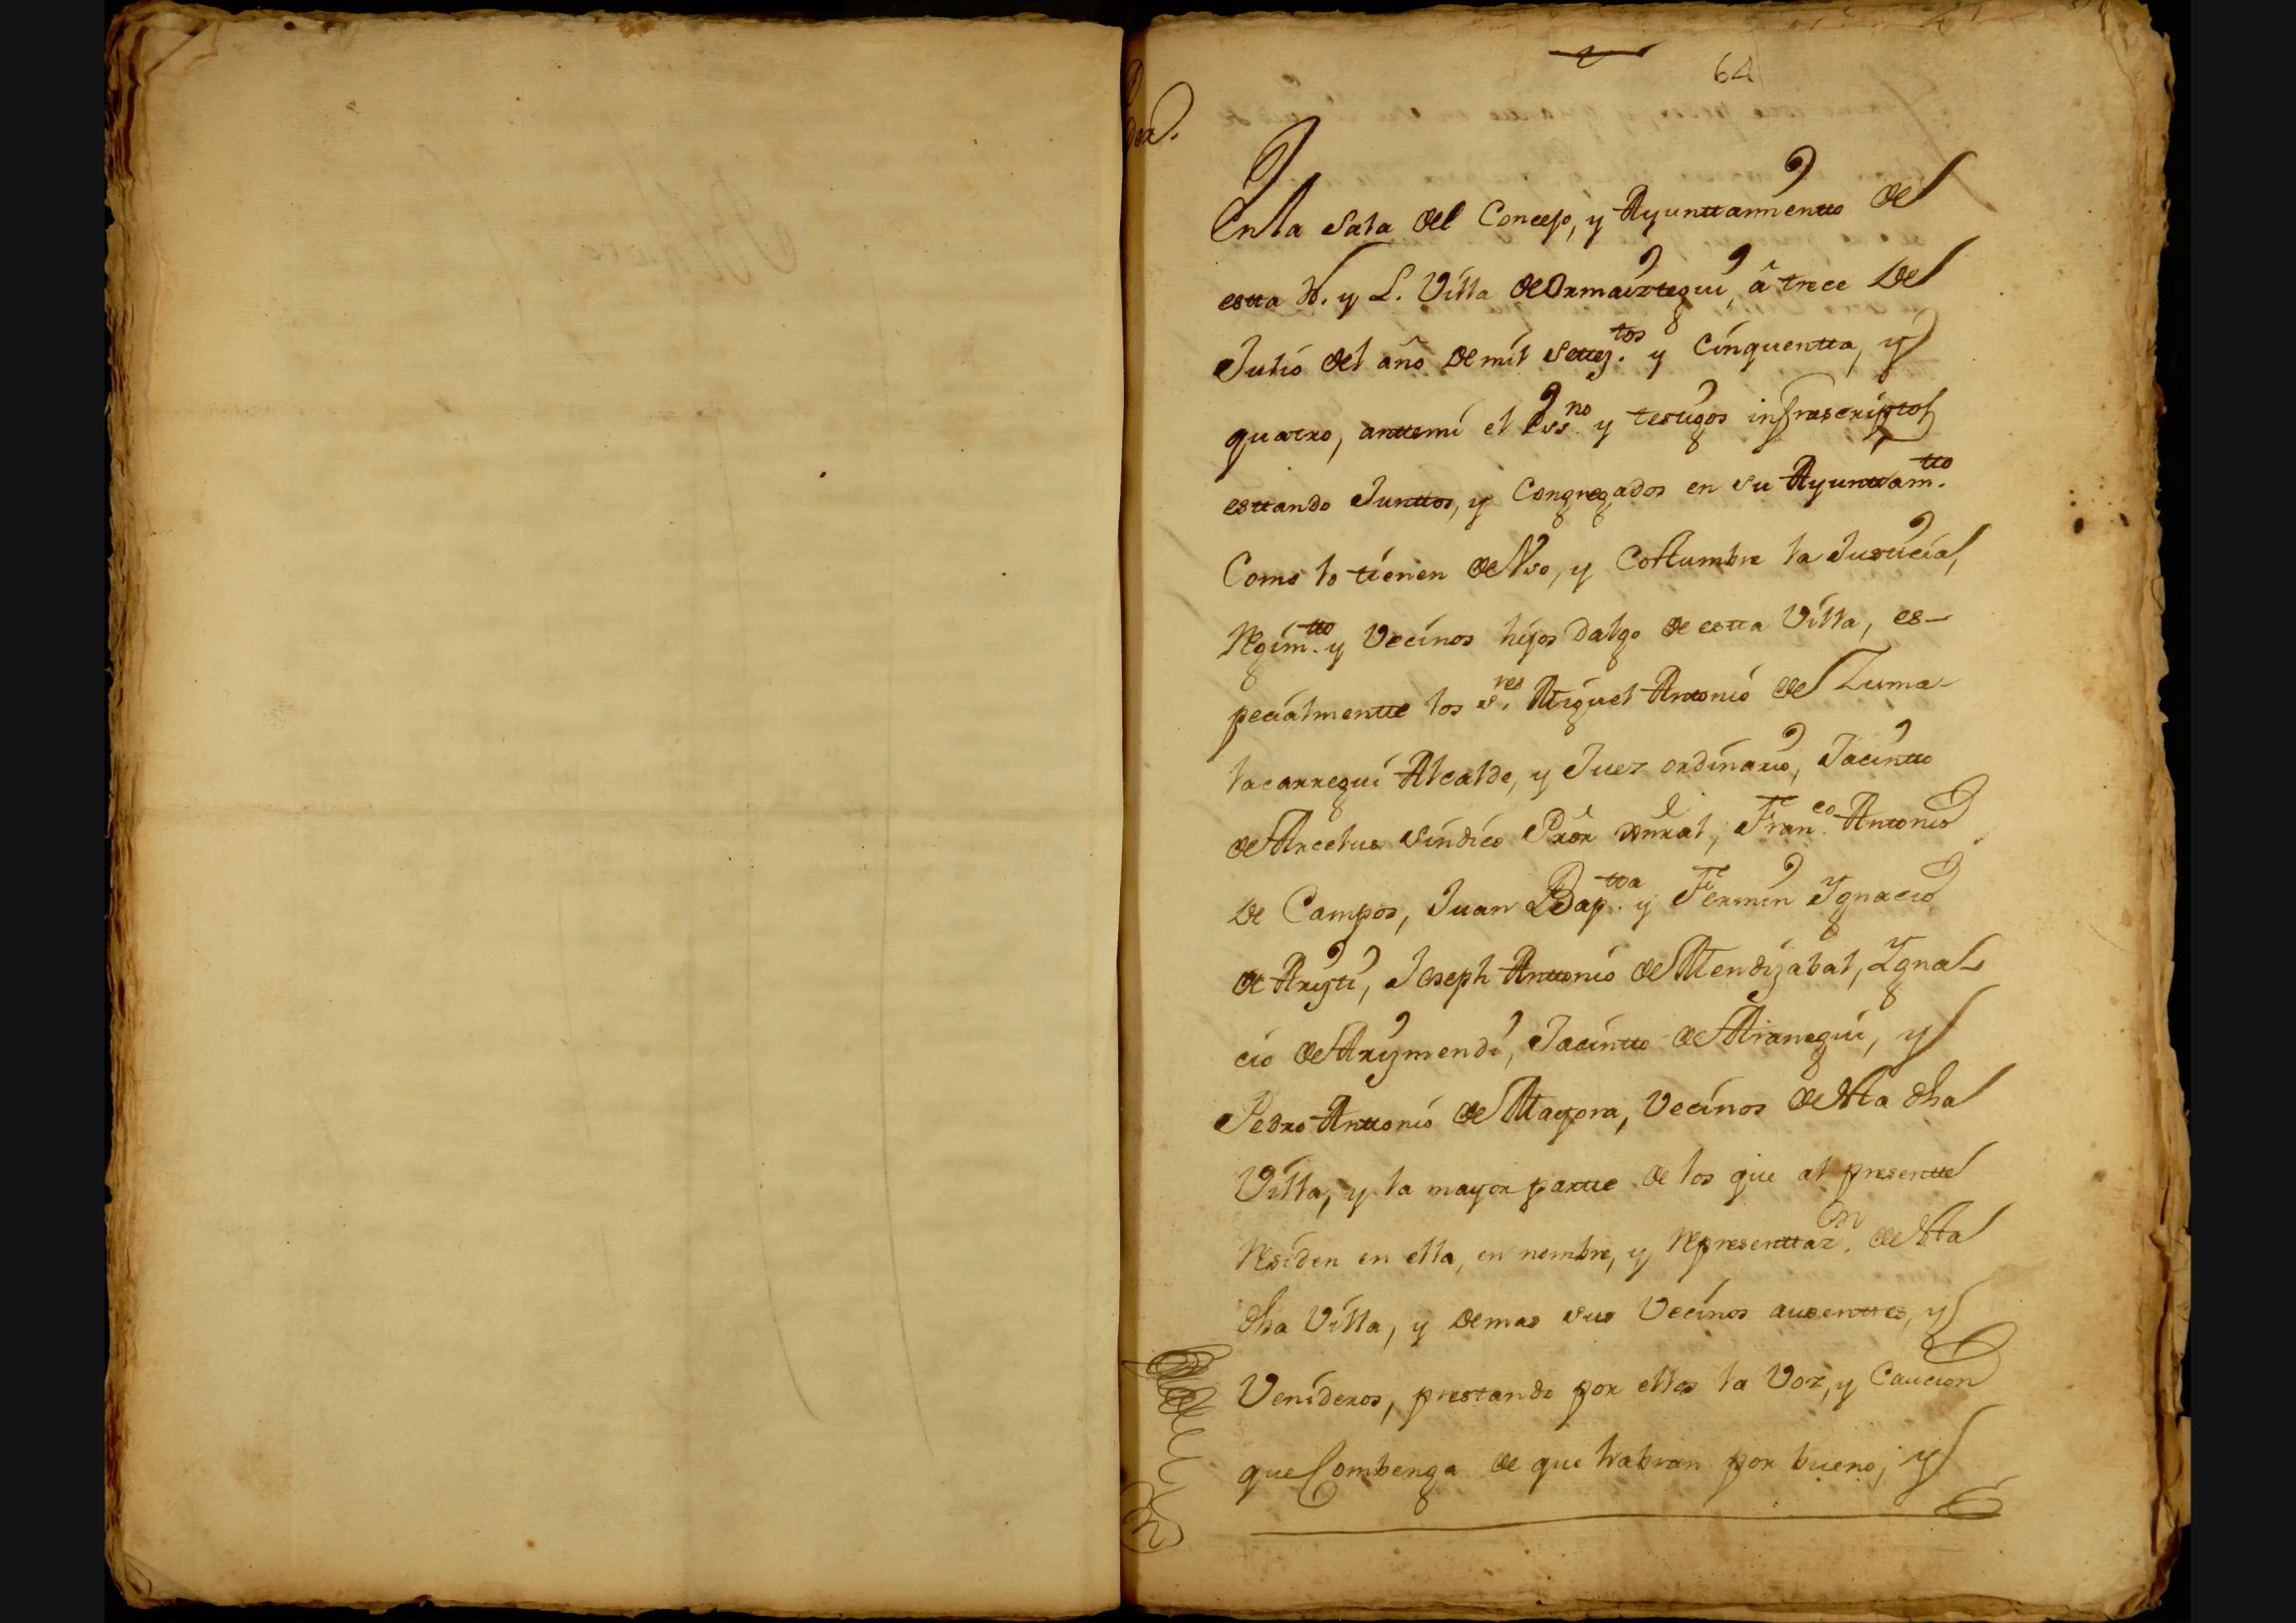 64
En la Sala del Concejo, y Ayunttamientto de
estta N. y L. Villa de Ormaiztegui, â trece de
Julio del año de mil Settez.tos y cinquentta, y
quatro, anttemi el Ess.no y testigos infrascriptos
esttando Junttos, y Congregados en su Ayunttam.tto
Como lo tienen de Vso, y Costumbre la Justicia,
Regim.tto y Vecinos hijos dalgo de estta Villa, es-
pecialmentte los S.res Miguel Antonio de Zuma-
lacarregui Alcalde, y Juez ordinario, Jacintto
de Arcelus Sindico Prôr Gnral, Fran.co Antonio
de Campos, Juan Bap.tta y Fermin Ygnacio
de Aristi, Joseph Anttonio de Mendizabal, Ygna-
cio de Arismendi, Jacintto de Miranegui, y
Pedro Anttonio de Mayora, Vecinos de Sta dha
Villa, y la mayor partte de los que al presentte
Residen en ella, en nombre, y Representtaz.on de Sta
dha Villa, y demas sus Vecinos ausenttes, y
Venideros, prestando por ellos la Voz, y Caucion
que Combenga de que habran por bueno, y